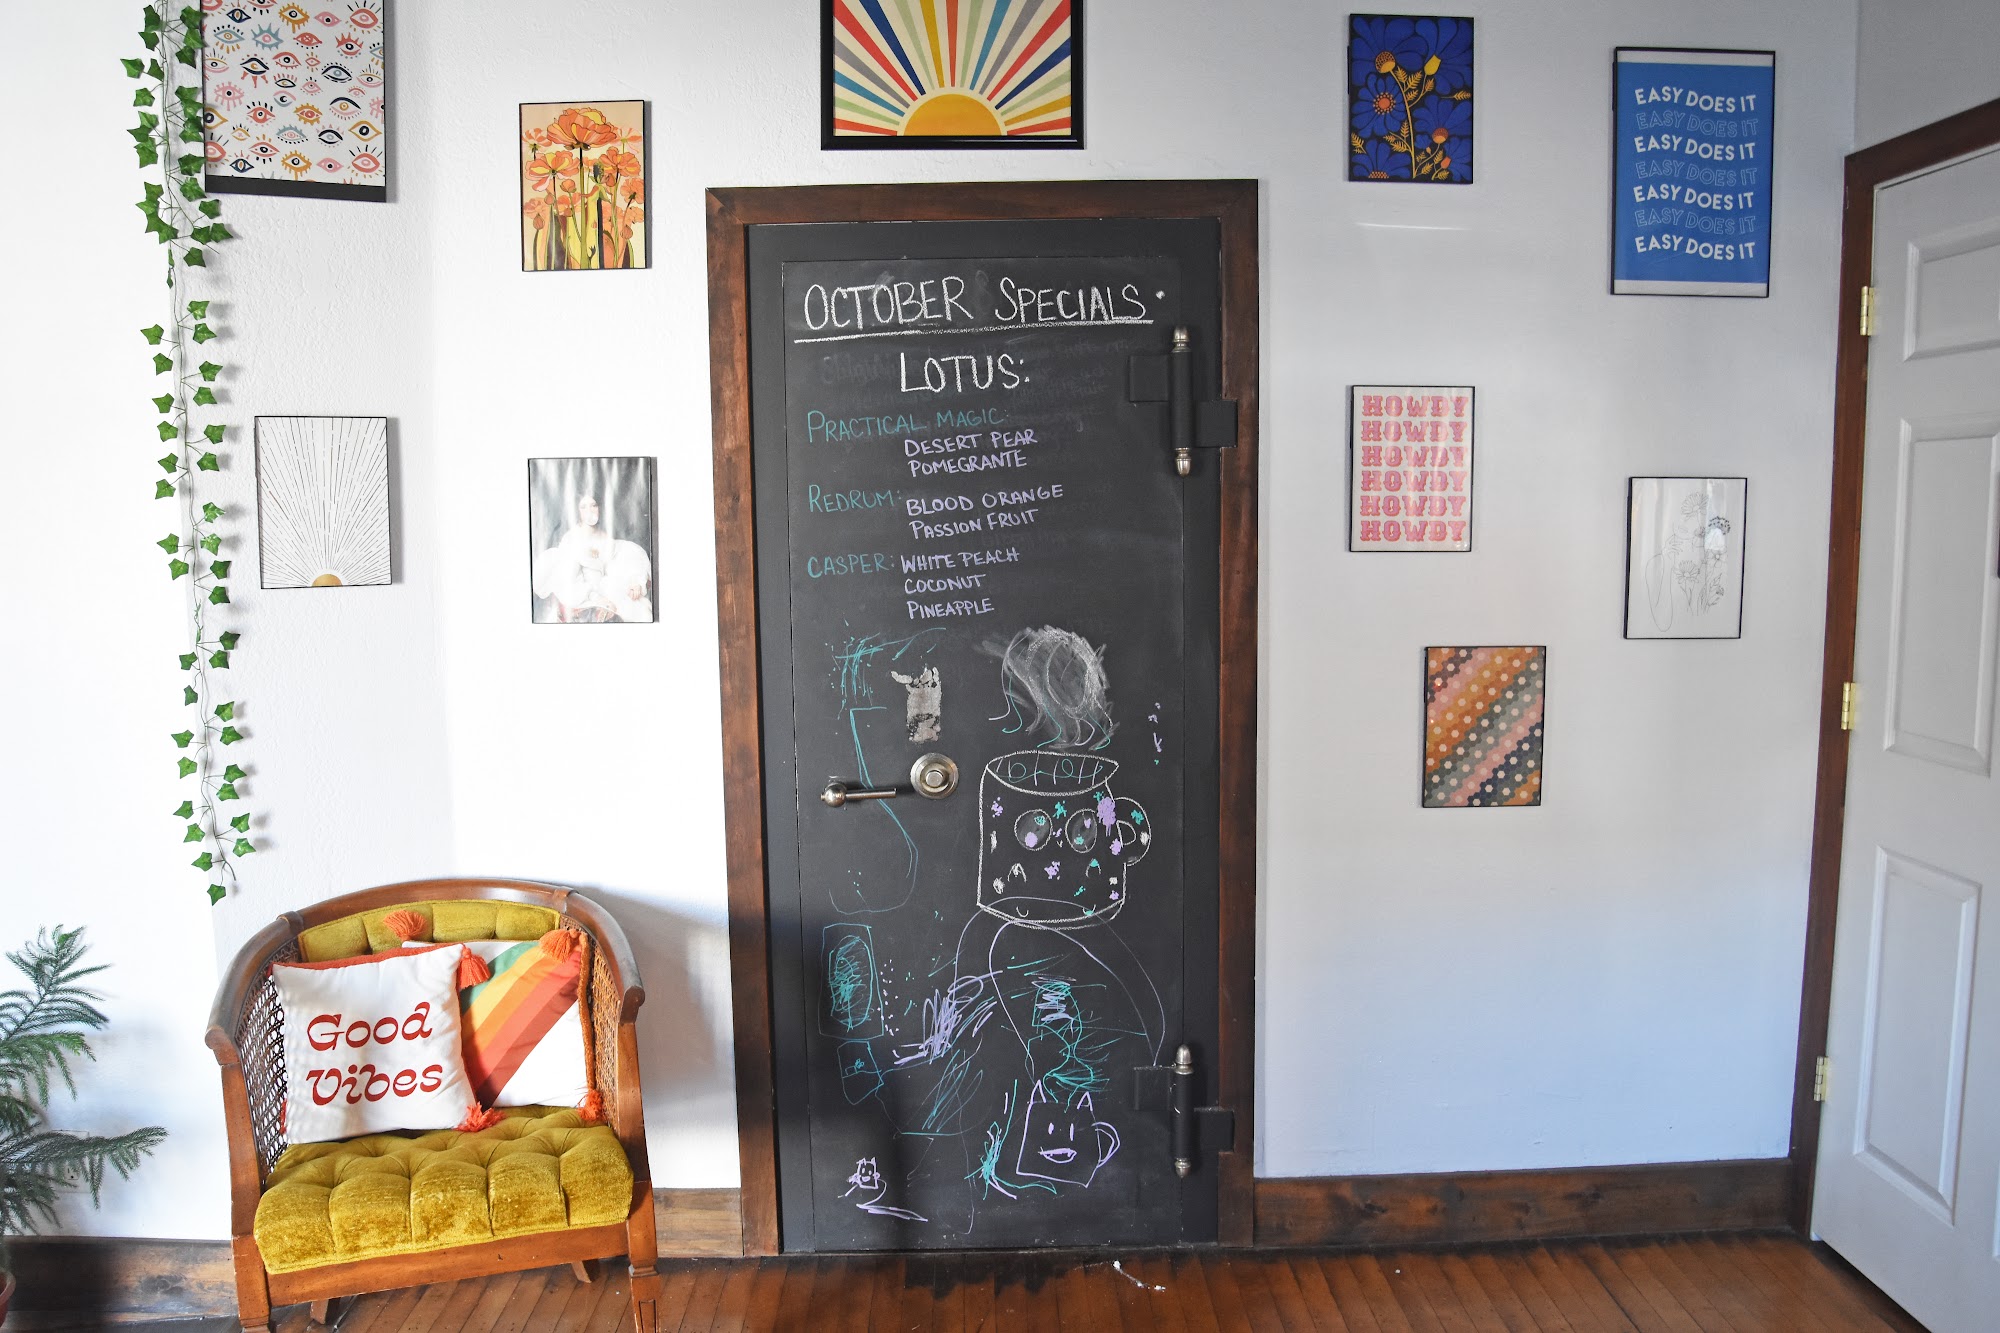 EASY DOES IT
EASY DOES IT
EASY DOES IT
EASY DOES IT
EASY DOES IT
EASY DOES IT
EASY DOES IT
OCTOBER SPECIALS
LOTUS:
PRACTICAL MAGIC:
DESERT PEAR
POMEGRANTE
REDRUM: BLOOD ORANGE
PASSION FRUIT
CASPER: WHITE PEACH
COCONUT
PINEAPPLE
HOWDY
HOWDY
HOWDY
HOWDY
HOWDY
HOWDY
Good
Vibes